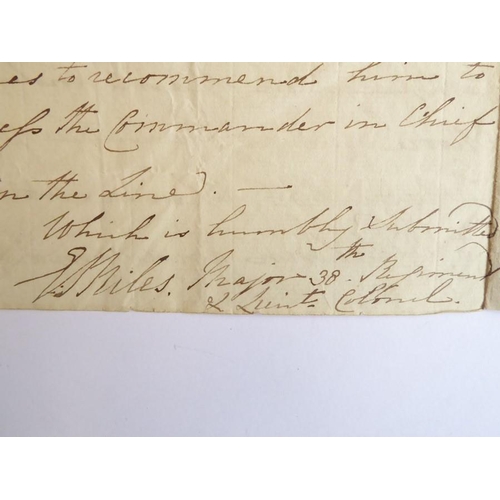 es to recommend him to
ess the Commander in Chief
in the Line. —
Which is humbly submitted
E. Miles. Major 38th. Regiment
& Lieut. Colonel.